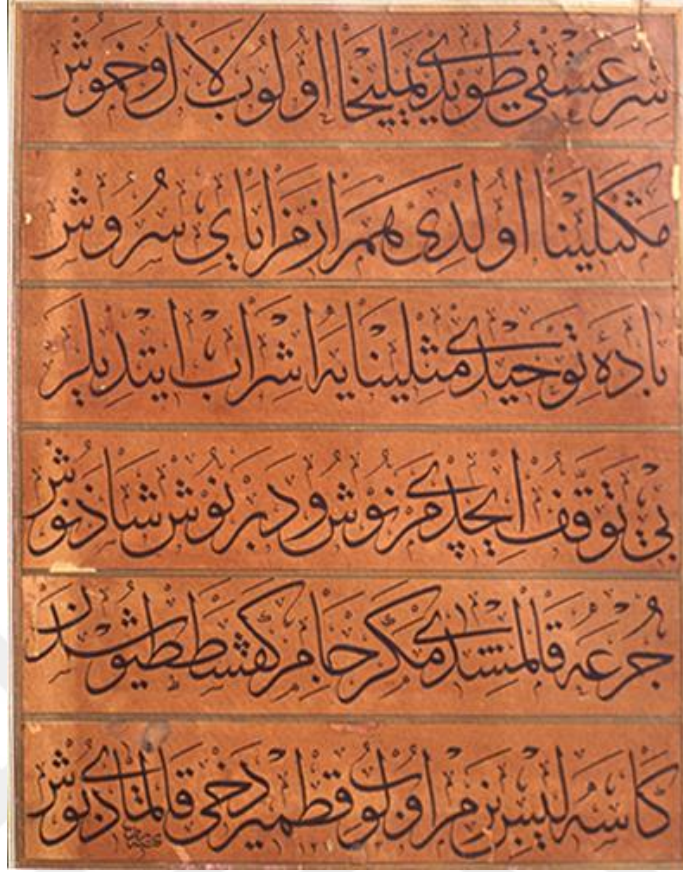 سر عشقی طویدی یملیخا اولوب لال و خموش
مکثلینا اولدی همراز مزایای سروش
بادۀ توحیدی مثلینایه اشراب ایتدیلر
بی توقف ایچدی مرنوش و دبرنوش شاذنوش
جرعه قالمشدی مکر جام کفشططیوشدن
کاسه لیس بزم اولوب قطمیر دخی قالمادی بوش